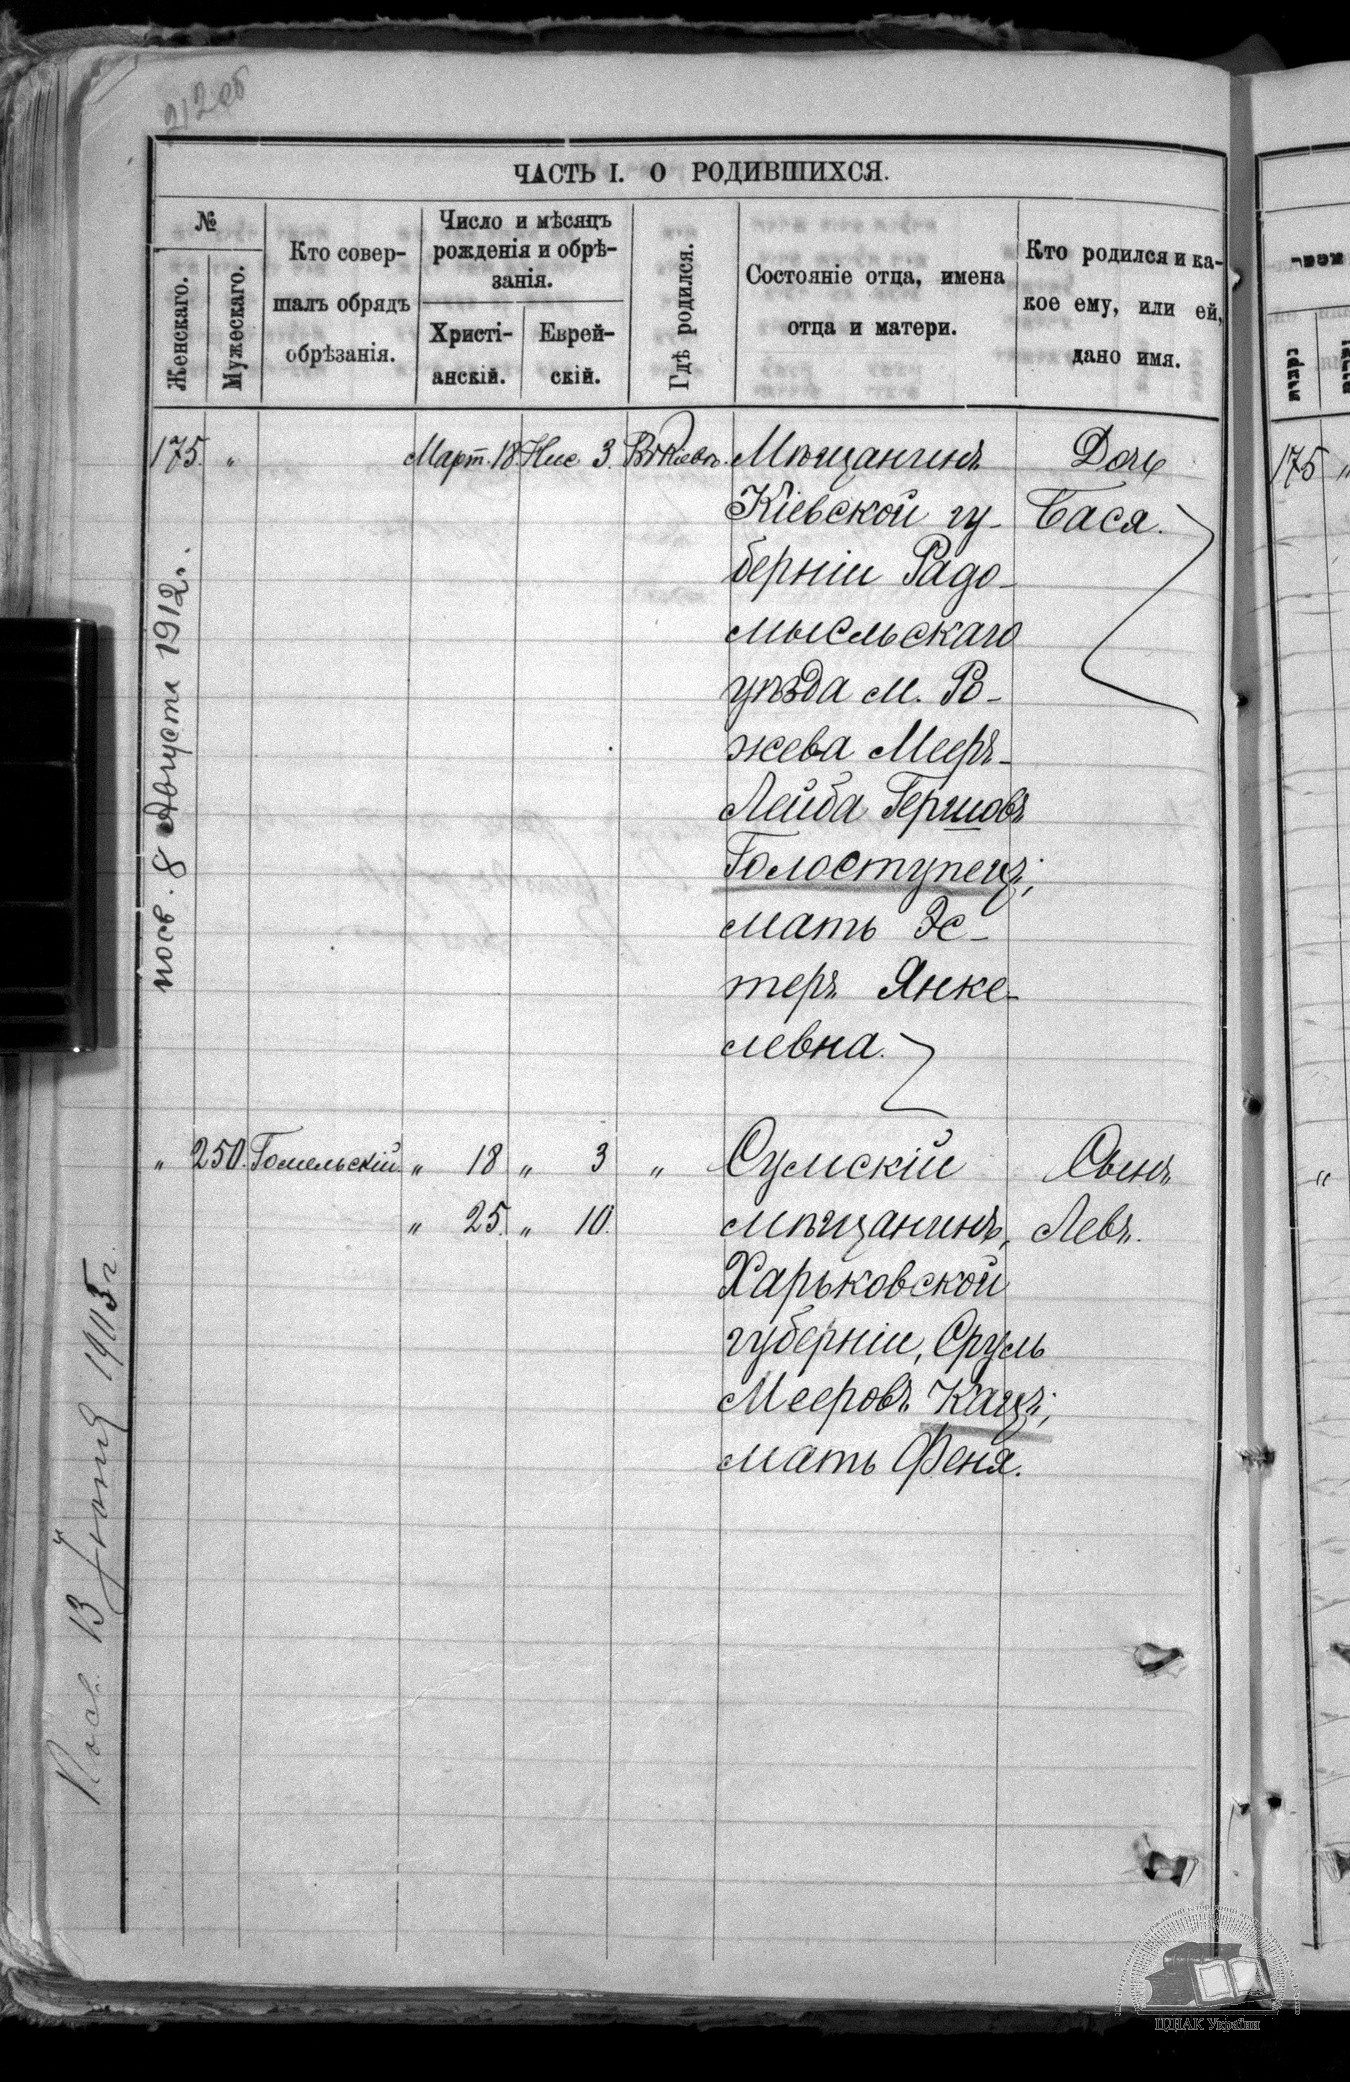 212 об
ЧАСТЬ I. О РОДИВШИХСЯ.
№
Женскаго.
Мужескаго.
Кто совер-
шалъ обрядъ
обрѣзанія.
Число и мѣсяцъ
рожденія и обрѣ-
занія.
Христі-
анскій.
Еврей-
скій.
Гдѣ родился.
Состояніе отца, имена
отца и матери.
Кто родился и ка-
кое ему, или ей,
дано имя.
175. „ Март. 18 Нис 3. Въ Кіевѣ. Мѣщанинъ Дочь
Кіевской гу- Бася.
берніи Радо-
мысльскаго
уѣзда м. Ро-
жева Мееръ-
Лейба Гершовъ
Голоступецъ;
мать Эс-
теръ Янке-
левна.
„ 250. Гомельскій „ 18 „ 3 „ Сумскій Сынъ
„ 25. „ 10. мѣщанинъ, Левъ.
Харьковской
губерніи, Сруль
Мееровъ Кацъ;
мать Феня.
посв. 8 Августа 1912.
Посв. 13 Іюня 1905 г.
175 „
„
נקבות
ЦДІАК України